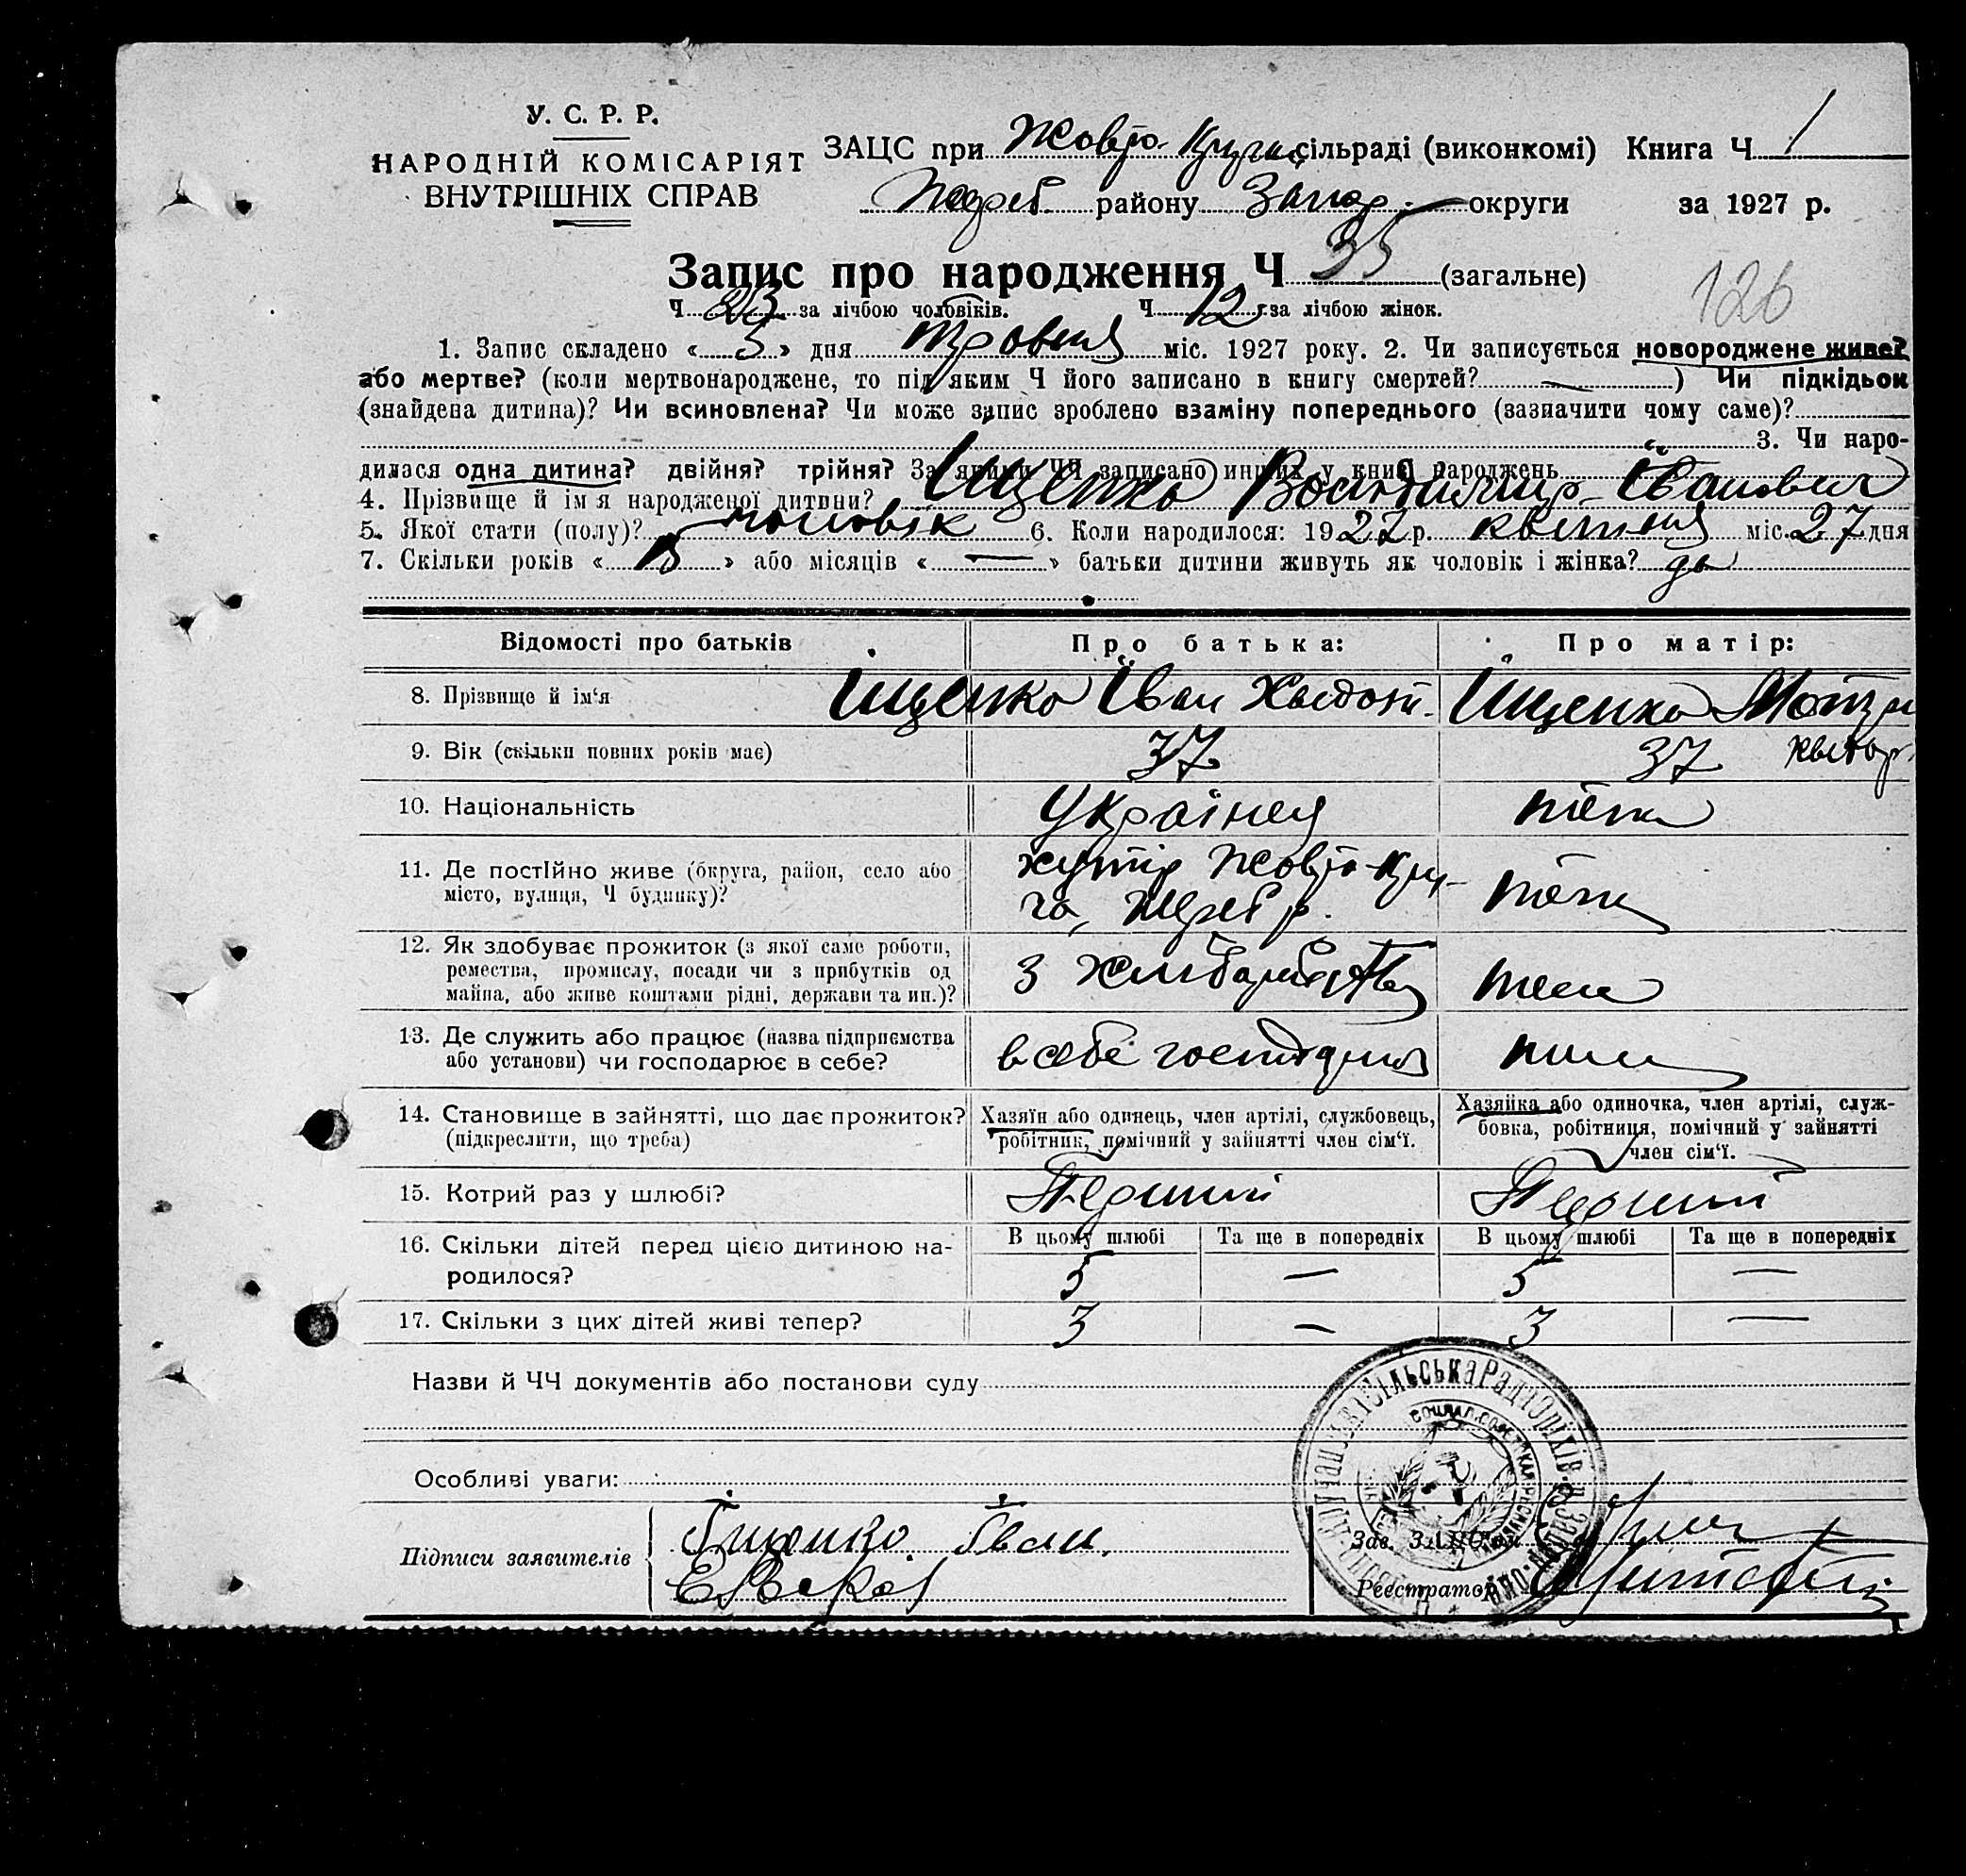 У. С. Р. Р.
НАРОДНІЙ КОМІСАРІЯТ
ВНУТРІШНІХ СПРАВ
ЗАЦС при Жовто-Круч. сільраді (виконкомі) Книга Ч. 1
Жереб. району Запор. округи за 1927 р.
Запис про народження Ч 35 (загальне)
126
Ч. 23 за лічбою чоловіків. Ч. 12 за лічбою жінок.
1. Запис складено « 5 » дня травня міс. 1927 року. 2. Чи записується новороджене живе?
або мертве? (коли мертвонароджене, то під яким Ч його записано в книгу смертей? — ) Чи підкідьок
(знайдена дитина)? Чи всиновлена? Чи може запис зроблено взаміну попереднього (зазначити чому саме)?
3. Чи наро-
дилася одна дитина? двійня? трійня? За якими ЧЧ записано инших у книзі народжень
4. Прізвище й ім'я народженої дитини? Іщенко Володимир Іванович
5. Якої стати (полу)? чоловік 6. Коли народилося: 1927 р. квітня міс. 27 дня
7. Скільки років « » або місяців « — » батьки дитини живуть як чоловік і жінка? да
Відомості про батьків
Про батька:
Про матір:
8. Прізвище й ім'я
Іщенко Іван
Іщенко Мотря
9. Вік (скільки повних років має)
37
37
10. Національність
Українец
11. Де постійно живе (округа, район, село або
місто, вулиця, Ч будинку)?
хутір Жовто-Кру-
ча, Жереб р.
12. Як здобуває прожиток (з якої саме роботи,
ремества, промислу, посади чи з прибутків од
майна, або живе коштами рідні, держави та ин.)?
з хліборобства
13. Де служить або працює (назва підприємства
або установи) чи господарює в себе?
в себе
14. Становище в зайнятті, що дає прожиток?
(підкреслити, що треба)
Хазяїн або одинець, член артілі, службовець,
робітник, помічний у зайнятті член сім'ї.
Хазяйка або одиночка, член артілі, служ-
бовка, робітниця, помічний у зайнятті
член сім'ї.
15. Котрий раз у шлюбі?
Перший
Перший
16. Скільки дітей перед цією дитиною на-
родилося?
В цьому шлюбі Та ще в попередніх В цьому шлюбі Та ще в попередніх
5 — 5 —
17. Скільки з цих дітей живі тепер?
3 — 3 —
Назви й ЧЧ документів або постанови суду
Особливі уваги:
Підписи заявителів
Іщенко Іван.
Зав. ЗАЦС'ом
Реєстратор